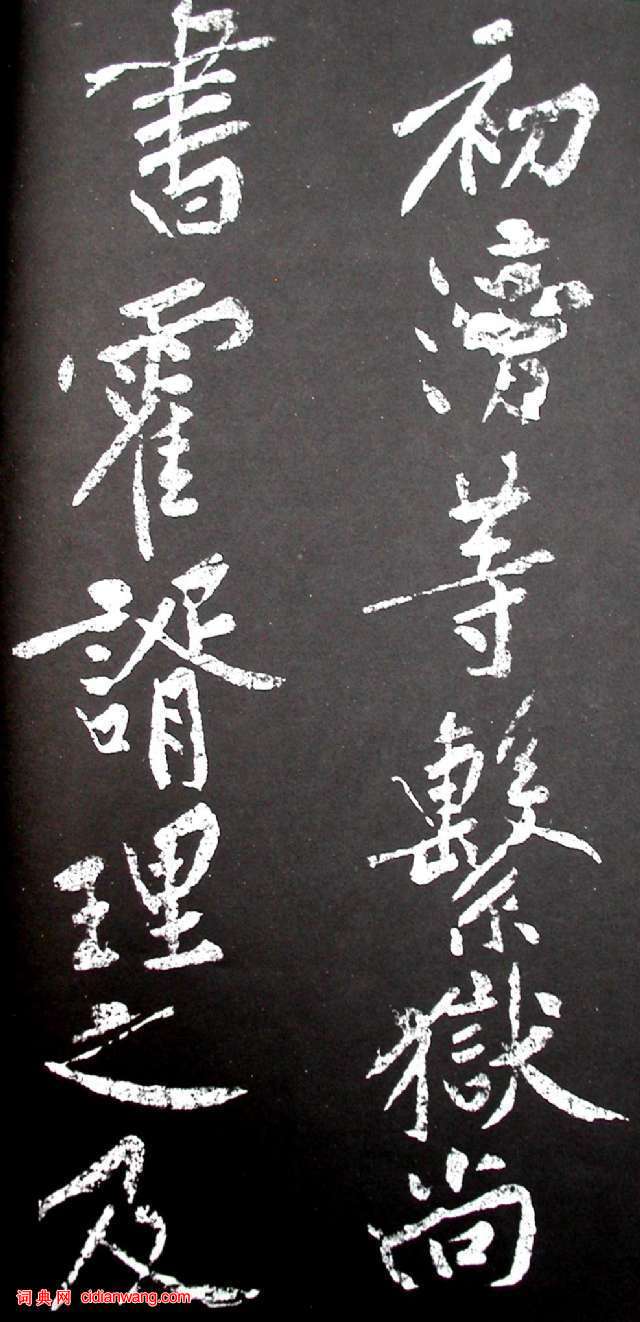 初滂等繫獄尚
書霍諝理之及
词典网 cidianwang.com